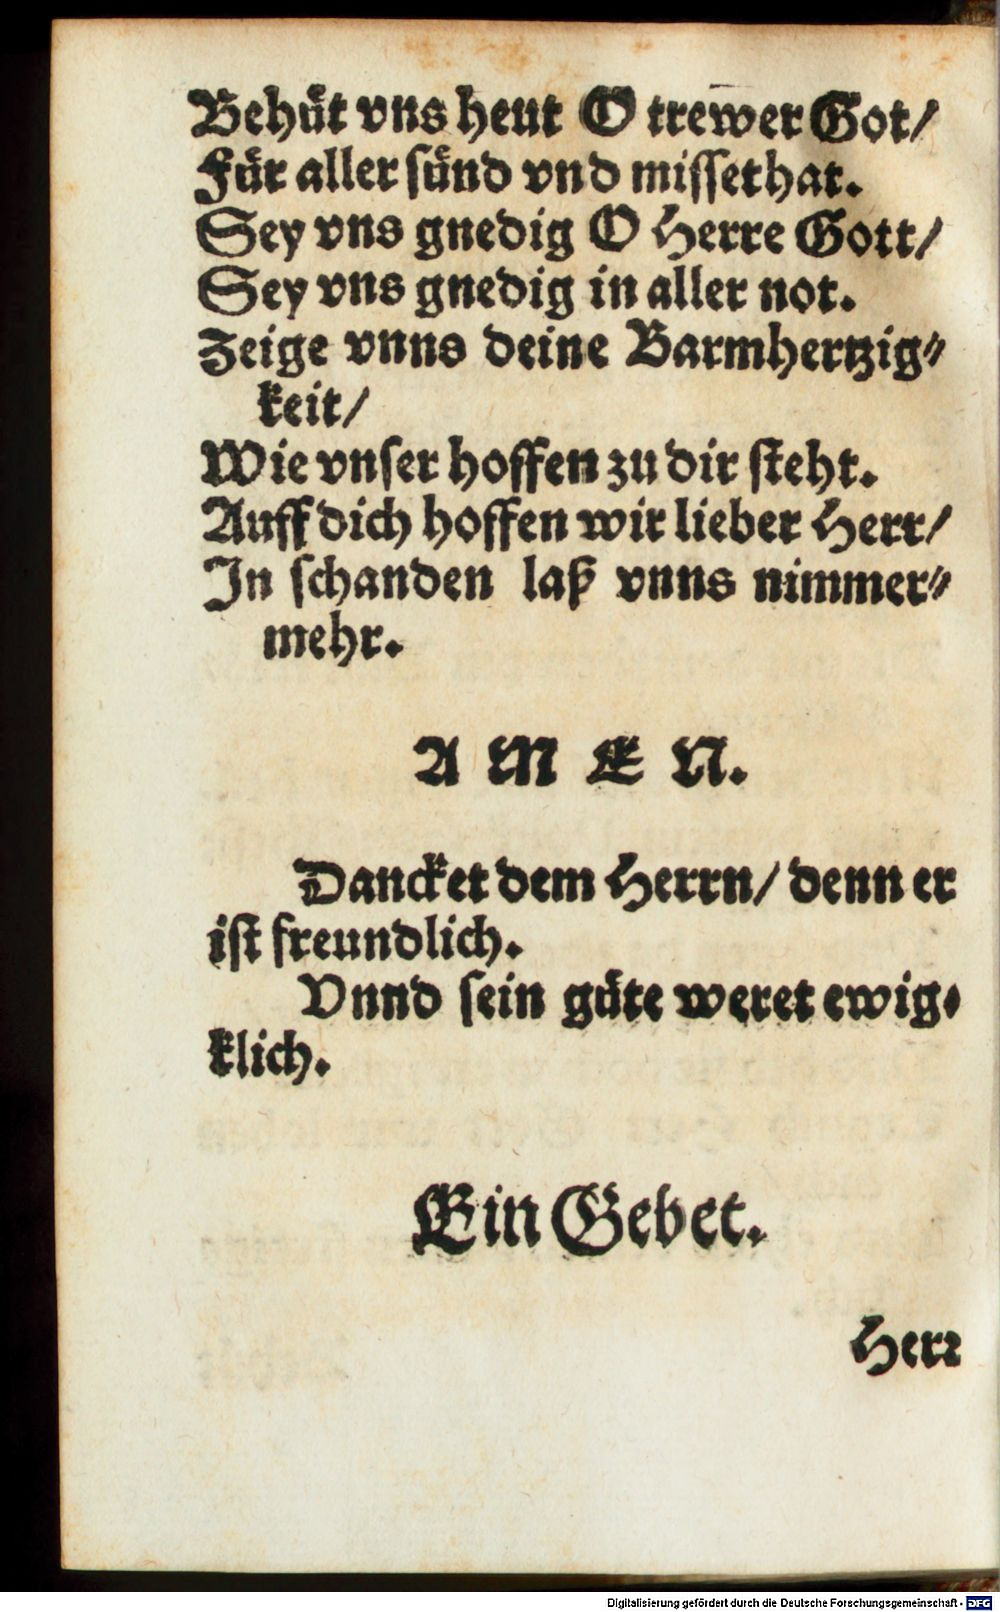 Behuͤt vns heut O trew̄er Got/
Fuͤr aller suͤnd vnd missethat.
Sey vns gnedig O Herre Gott/
Sey vns gnedig in aller not.
Zeige vnns deine Barmhertzig⸗
keit/
Wie vnser hoffen zu dir steht.
Auff dich hoffen wir lieber Herr/
In schanden laß vnns nimmer⸗
mehr.
A M E N.
Dancket dem Herrn/ denn er
ist freundlich.
Vnnd sein guͤte weret ewig⸗
klich.
Ein Gebet.
Herr
Digitalisierung gefördert durch die Deutsche Forschungsgemeinschaft - DFG